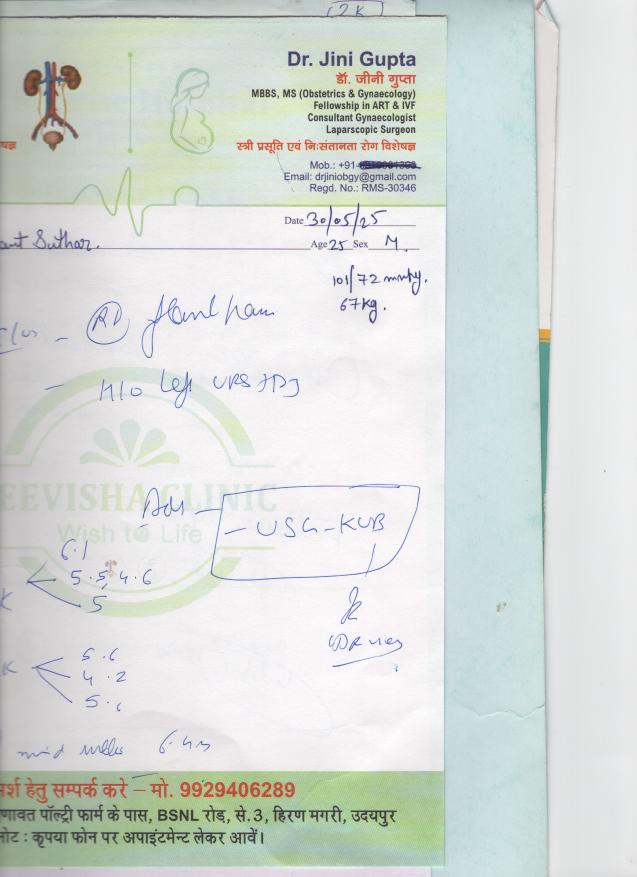 Dr. Jini Gupta
डॉ. जीनी गुप्ता
MBBS, MS (Obstetrics & Gynaecology)
Fellowship in ART & IVF
Consultant Gynaecologist
Laparscopic Surgeon
स्त्री प्रसूति एवं निःसंतानता रोग विशेषज्ञ
Mob.: +91-
Email: drjiniobgy@gmail.com
Regd. No.: RMS-30346
Date 30/05/25
Suthar. Age 25 Sex M.
101/72 mmHg.
67 kg.
H/O Left URS
EEVISHA CLINIC
Wish to Life
Adv - USG-KUB
6.1
5.5, 4.6
5
5.6
4.2
मर्श हेतु सम्पर्क करे – मो. 9929406289
णावत पॉल्ट्री फार्म के पास, BSNL रोड़, से.3, हिरण मगरी, उदयपुर
नोट : कृपया फोन पर अपाइंटमेन्ट लेकर आवें।